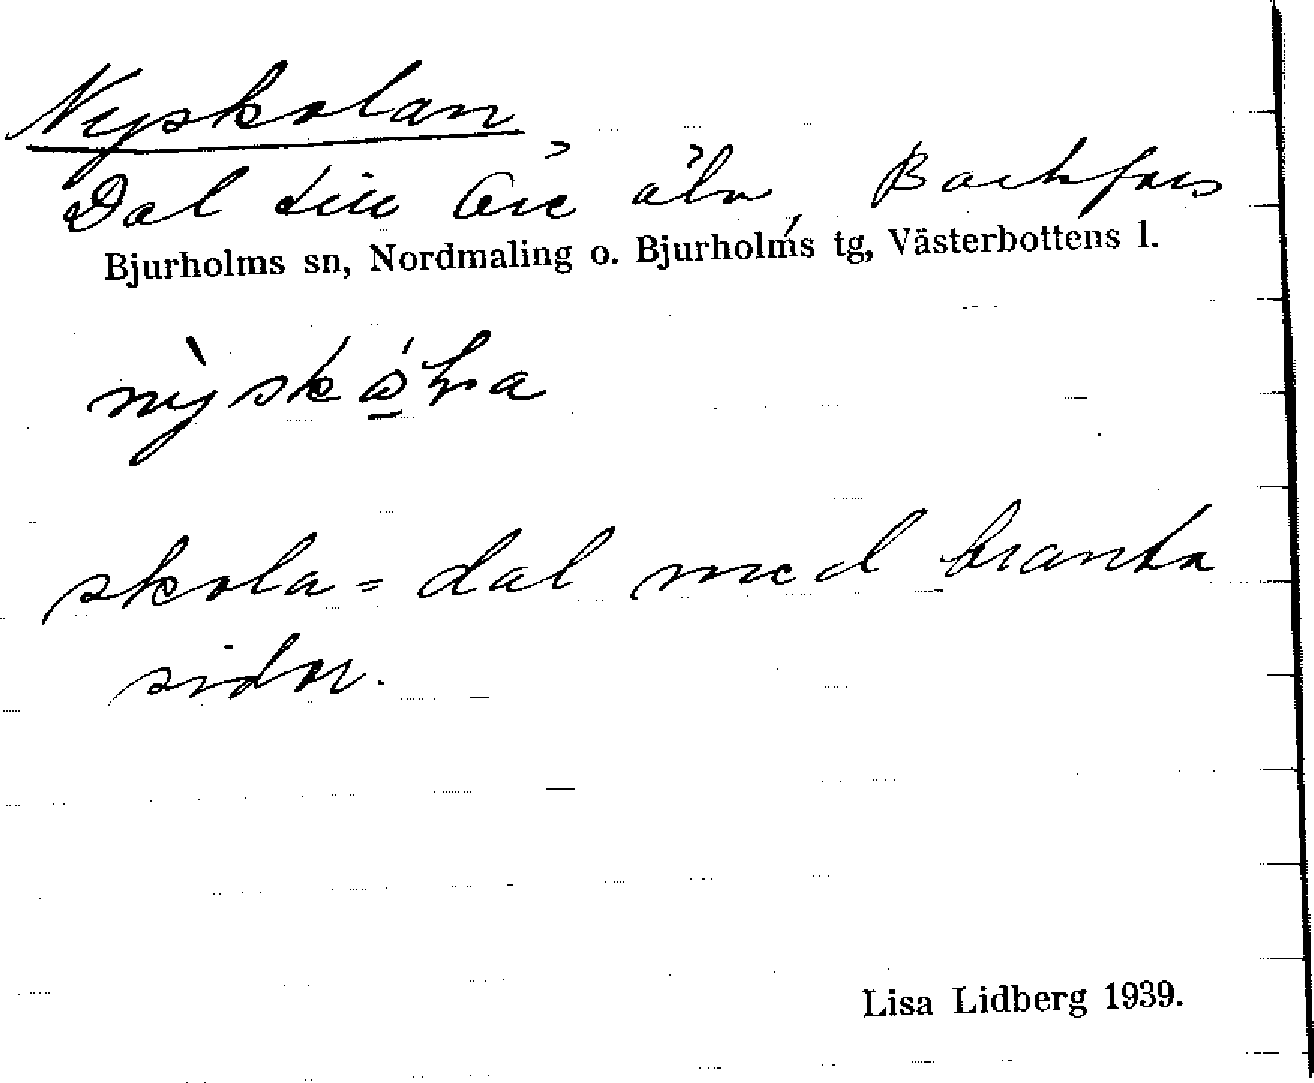 Nyskolan
Dal till Öre älv, Backfors
Bjurholms sn, Nordmaling o. Bjurholms tg, Västerbottens l.
skola = dal med branta
sidor.
Lisa Lidberg 1939.